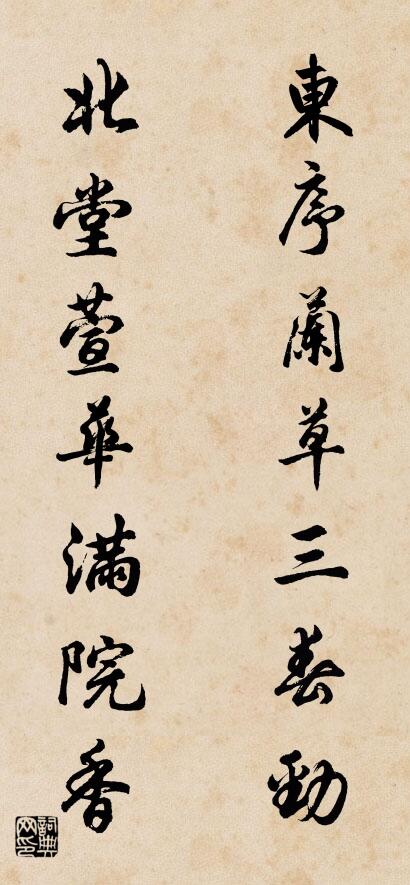 東序蘭草三春勁
北堂萱華滿院香
詞典网印